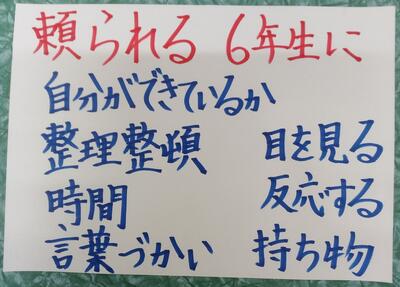 頼られる 6年生に
自分ができているか
整理整頓 目を見る
時間 反応する
言葉づかい 持ち物